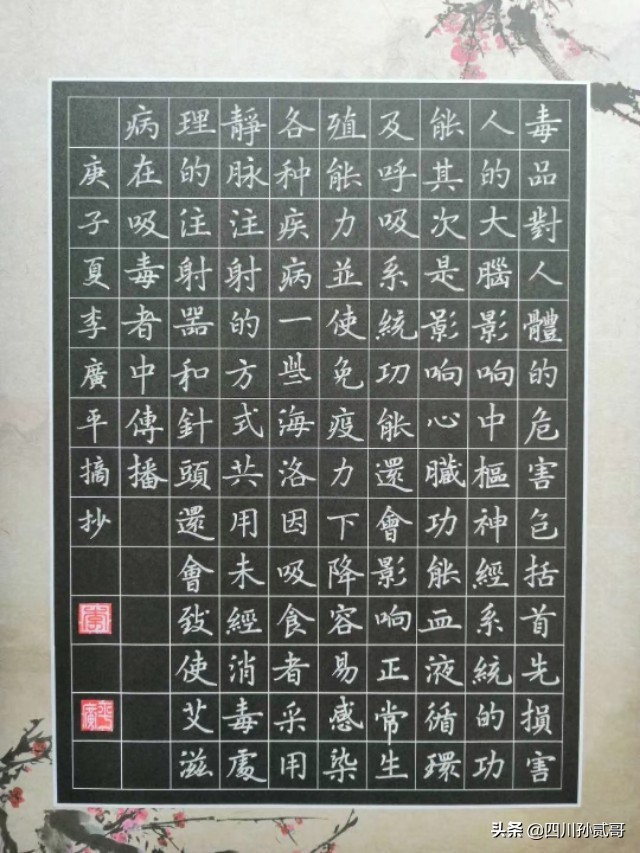 毒品對人體的危害包括首先損害
人的大腦影响中樞神經系統的功
能其次是影响心臟功能血液循環
及呼吸系統功能還會影响正常生
殖能力並使免疫力下降容易感染
各种疾病一些海洛因吸食者采用
靜脉注射的方式共用未經消毒處
理的注射器和針頭還會致使艾滋
病在吸毒者中傳播
庚子夏李廣平摘抄
李
头条 @四川孙贰哥